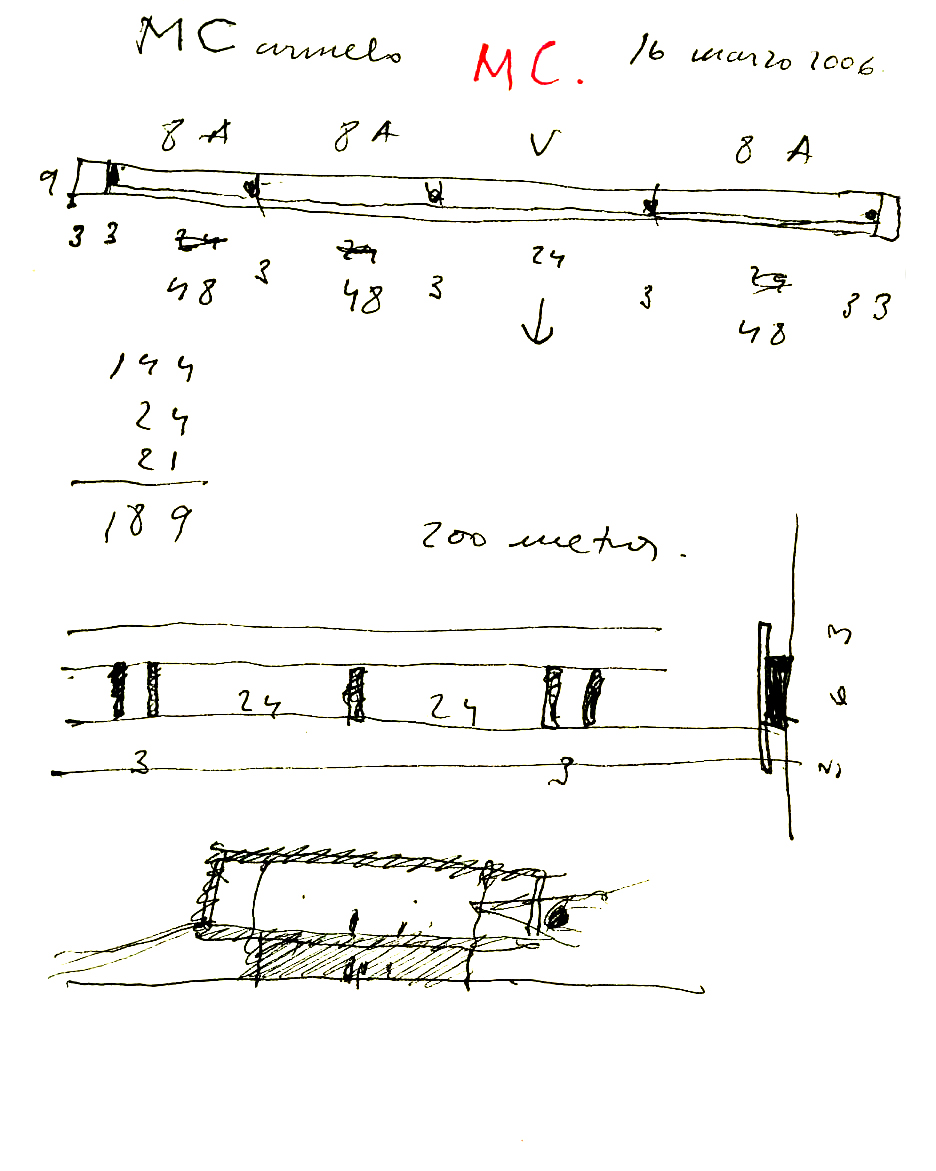 MCarmelo MC. 16 marzo 2006.
8 A 8 A V 8 A
9
3 3 24 3 24 3 24 3 24 3 3
48 48 48
144
24
21
189
200 metros.
3
24 24
3 3